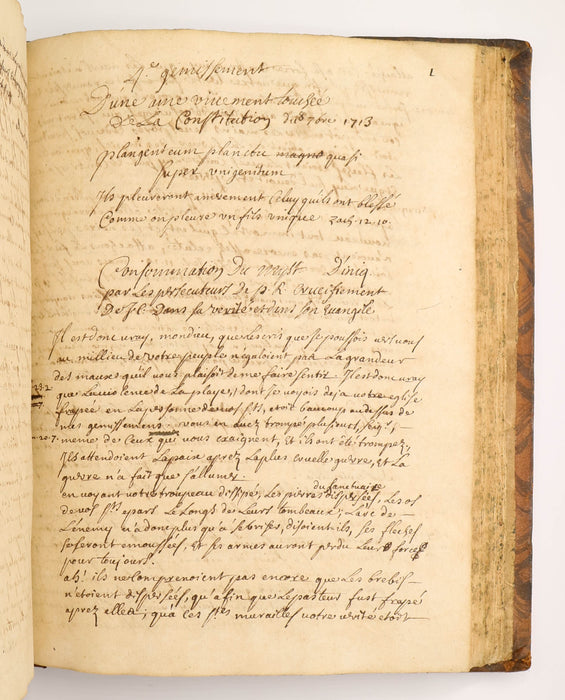 4.e gemissement
1
D'une ame vivement touchée
De La Constitution du 8 7bre 1713
plangent eum planctu magno quasi
super unigenitum
Ils pleureront amerement Celuy qu'ils ont blessé
Comme on pleure un fils unique zach. 12. 10.
Consommation Du myst D'iniq.
par Les persecuteurs de p. R. Crucifiement
De J. C. Dans sa verité et dans son Evangile
Il est donc vray, mondieu, que les cris que je poussois vers vous
au millieu de votre peuple n'egaloient pas La grandeur
des maux quil vous plaisoit de me faire sentir. Il est donc vray
que La violence de La playe, dont je voyois deja votre eglise
frapée en La personne de vos Sts, etoit beaucoup audessus de
mes gemissemens. vous en avez trompé plusieurs, Seigr,
meme de Ceux qui vous craignent, Et ils ont été trompez,
Ils attendoient La paix aprez La plus cruelle guerre, et La
guerre n'a fait que s'allumer.
en voyant votre troupeau dissipé, Les pierres du sanctuaire dispersées, Les os
de vos Sts epars Le Long de Leurs tombeaux; L'arc de
L'ennemy n'a donc plus qu'a se briser, disoient ils, ses fleches
se seront emoussées, et ses armes auront perdu Leur force
pour toujours.
ah! ils ne Comprenoient pas encore que Les brebis
n'etoient dispersées, qu'afin que Le pasteur fust frapé
aprez elles; qua ces Stes murailles votre verité etoit